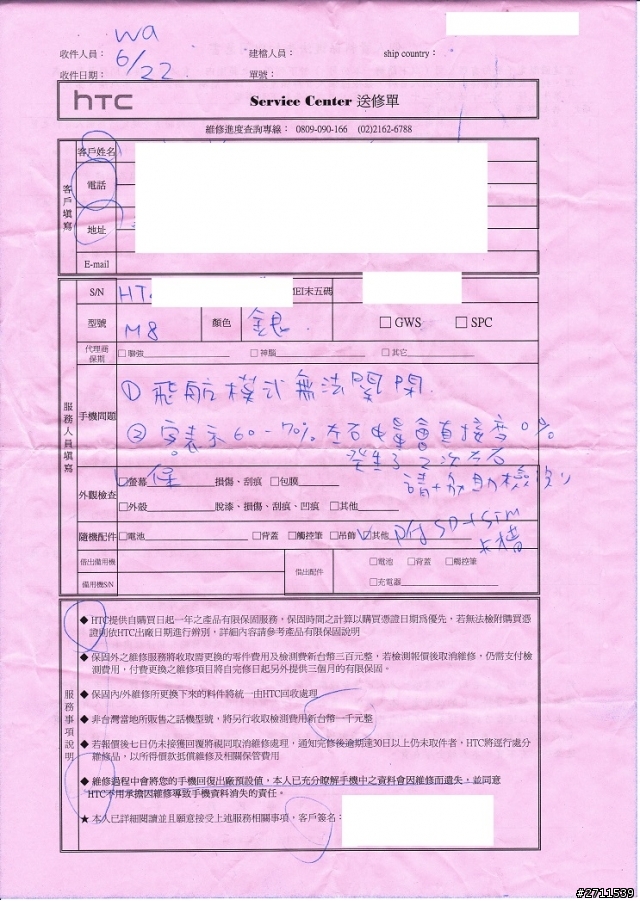 wa
收件人員： 建檔人員： ship country：
6/22
收件日期： 單號：
hTC Service Center 送修單
維修進度查詢專線： 0809-090-166 (02)2162-6788
客戶填寫
客戶姓名
電話
地址
E-mail
服務人員填寫
S/N HT. MEI末五碼
型號 M8 顏色 銀. □ GWS □ SPC
代理商保固 □ 聯強 □ 神腦 □ 其它
手機問題
① 飛航模式無法關閉.
② 客表示60-70%左右電量會直接變0%
發生了2次左右
請協助檢測
外觀檢查 □螢幕 保 損傷、刮痕 □包膜
□外殼 脫漆、損傷、刮痕、凹痕 □其他
隨機配件 □電池 □背蓋 □觸控筆 □吊飾 ∨其他 附SD+SIM
卡槽
借出備用機 借出配件 □電池 □背蓋 □觸控筆
備用機S/N □充電器
服務事項說明
◆ HTC提供自購買日起一年之產品有限保固服務，保固時間之計算以購買憑證日期為優先，若無法檢附購買憑
證則依HTC出廠日期進行辨別，詳細內容請參考產品有限保固說明
◆ 保固外之維修服務將收取需更換的零件費用及檢測費新台幣三百元整，若檢測報價後取消維修，仍需支付檢
測費用，付費更換之維修項目將自完修日起另外提供三個月的有限保固。
◆ 保固內/外維修所更換下來的料件將統一由HTC回收處理
◆ 非台灣當地所販售之話機型號，將另行收取檢測費用新台幣一千元整
◆ 若報價後七日仍未接獲回覆將視同取消維修處理，通知完修後逾期達30日以上仍未取件者，HTC將逕行處分
維修品，以所得價款抵償維修及相關保管費用
◆ 維修過程中會將您的手機回復出廠預設值，本人已充分瞭解手機中之資料會因維修而遺失，並同意
HTC不用承擔因維修導致手機資料消失的責任。
★ 本人已詳細閱讀並且願意接受上述服務相關事項，客戶簽名：
#2711539